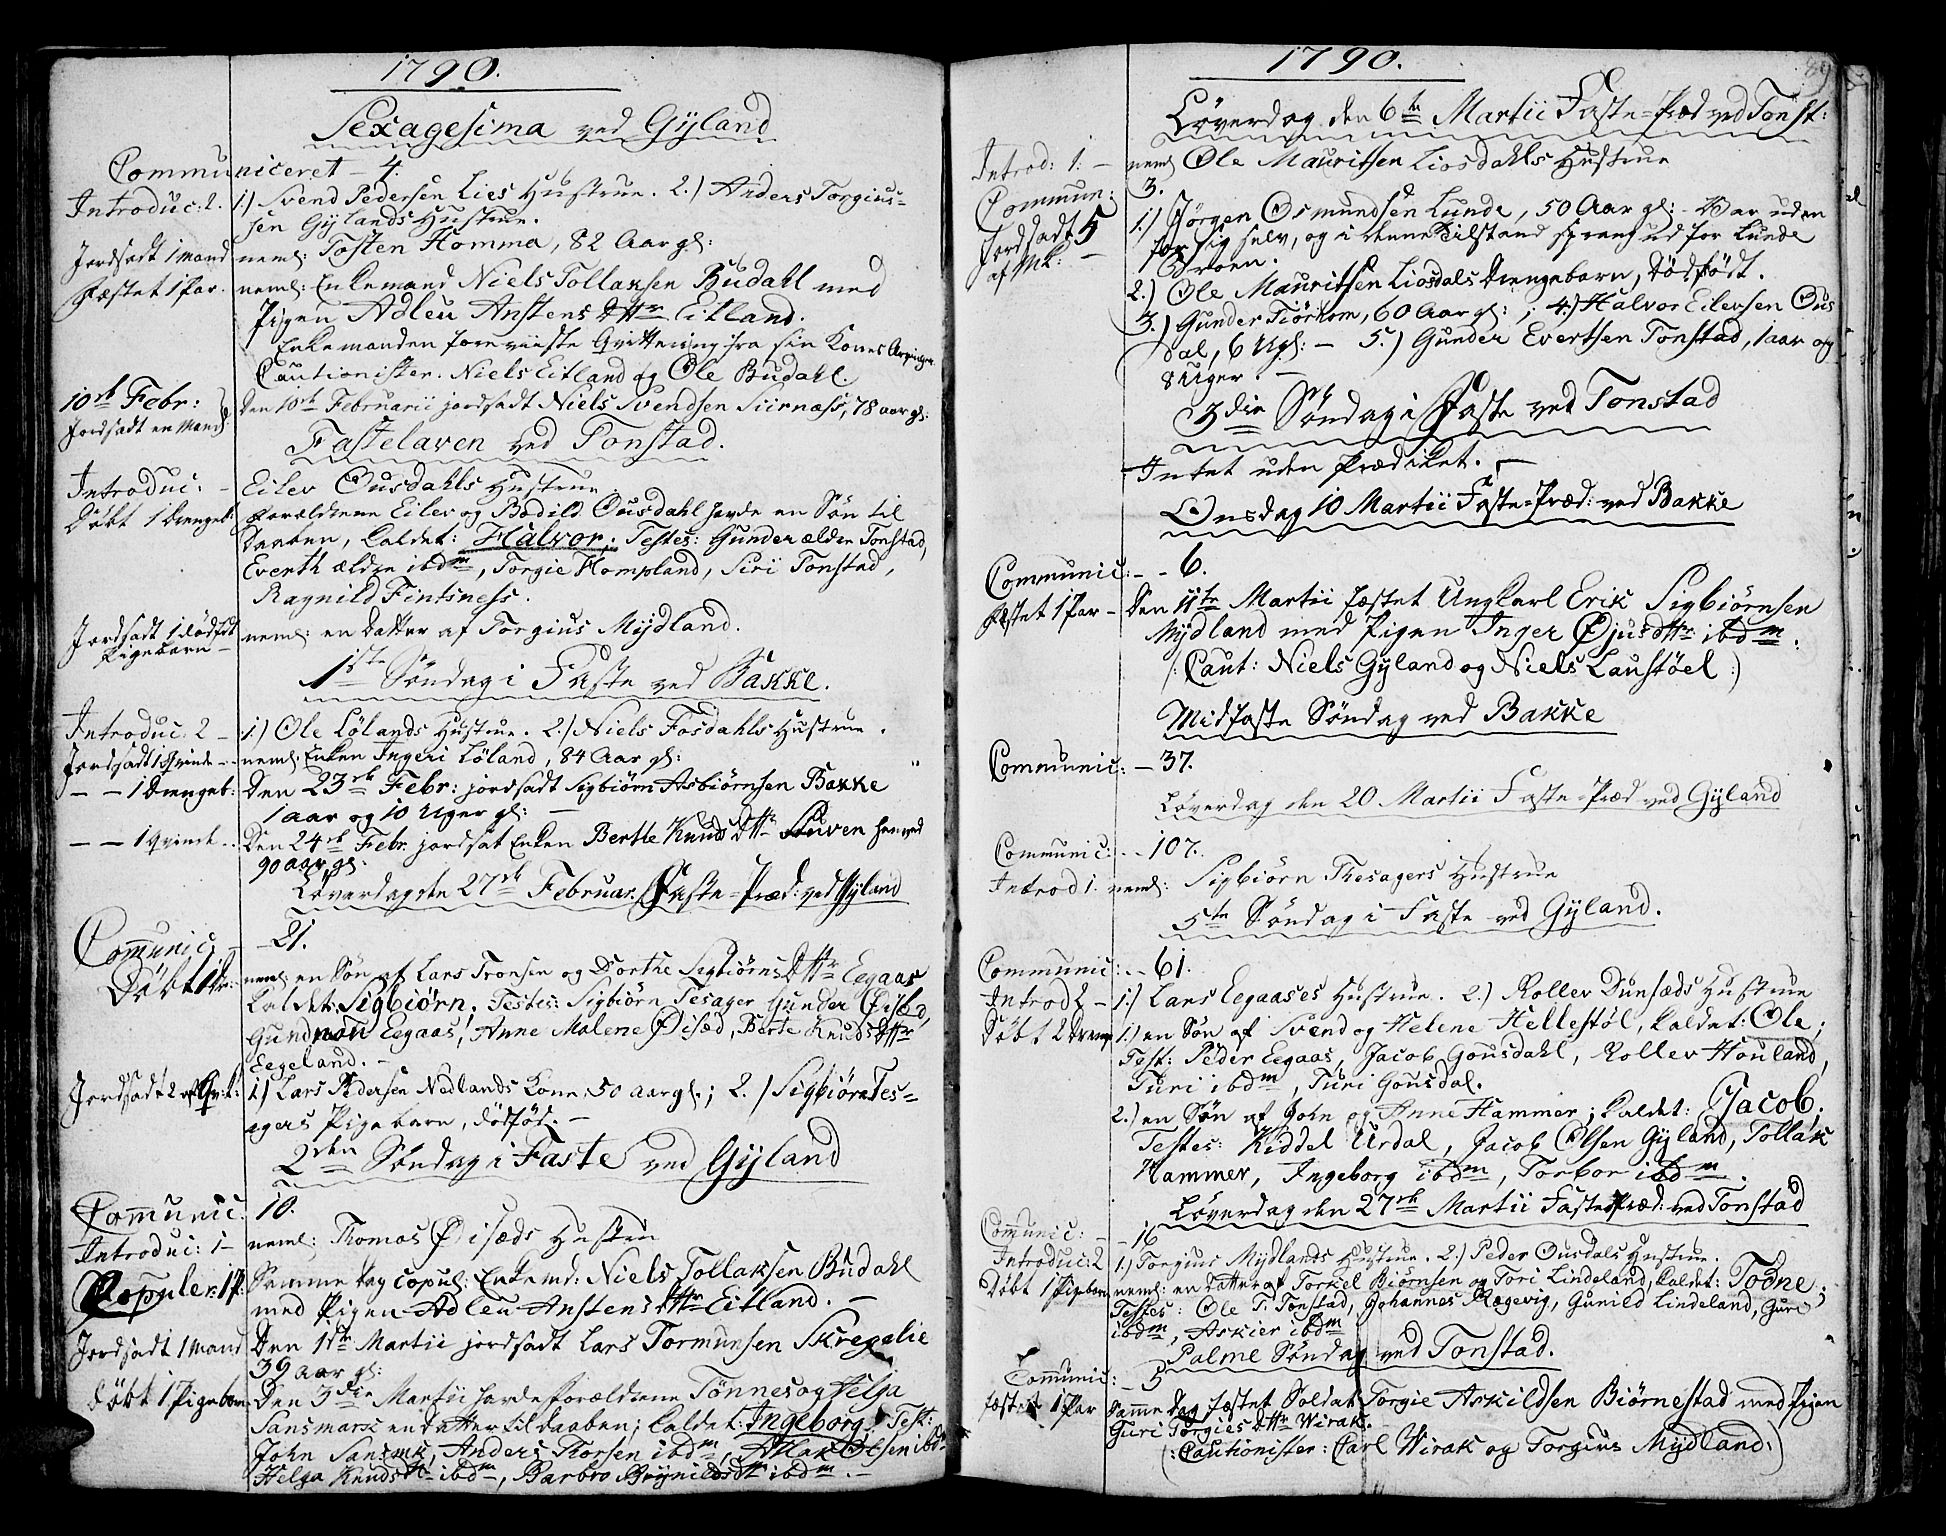 1790.
Sexagesima ved Gyland
Communiceret - 4.
Introduc: 2. 1) Svend Pedersen Lies Hustrue. 2.) Anders Torgius-
sen Gylands Hustrue.
Jordsadt 1 Mand neml: Tosten Homma, 82 Aar gl:
Fæstet 1 Par. neml: Enkemand Niels Tollaksen Budahl med
Pigen Adleu Anstens Dttr Eitland.
Enkemanden foreviiste Qvittering fra sin Kones Arvinger
Cautionister. Niels Eitland og Ole Budahl.
10de Febr: Den 10de Februarii jordsadt Niels Svendsen Siirnæss, 78 aar gl:
Jordsadt en Mand
Fastelaven ved Tonstad.
Introduc: - Eilev Ousdahls Hustrue.
Døbt 1 Drengeb: Forældrene Eilev og Bodild Ousdahl havde en Søn til
Daaben, kaldet: Halvor; Testes: Gunder ældre Tonstad,
Everth ældre ibdm, Torgie Hompland, Siri Tonstad,
Ragnild Fintsness.
Jordsadt 1 dødfdt neml: en Datter af Torgius Mydland.
Pigebarn -
1ste Søndag i Faste ved Bakke.
Introduc: 2 - 1.) Ole Lølands Hustrue. 2.) Niels Fosdahls Hustrue.
Jordsadt 1 Qvinde - neml: Enken Ingeri Løland, 84 Aar gl:
- - 1 Drengeb: Den 23de Febr: jordsadt Sigbiørn Asbiørnsen Bakke
1 aar og 10 Uger gl:
- - 1 Qvinde - Den 24de Febr jordsat Enken Berthe Knuds Dttr henved
90 aar gl:
Løverdag den 27de Februar. Faste-Præd: ved Gyland
Comunic - 21.
Døbt 1 neml: en Søn af Lars Tronsen og Dorthe Sigbiørns Dttr Eegaas
kaldet: Sigbiørn. Testes: Sigbiørn Tesager, Gunder Øisæd,
Eegaas, Anne Malene Øisæd, Berte Knuds Dttr
Eegeland. -
Jordsadt 2 af Qvk: 1) Lars Pedersen Nedlands Kone 50 aar gl.; 2.) Sigbiørn Tes-
agers Pigebarn, dødfød. -
2den Søndag i Faste ved Gyland
Comunic. 10.
Introduc: 1 - neml: Thomas Øisæds Hustru
Copuler: 1 P: Samme dag copul: Enkemd: Niels Tollaksen Budahl
med Pigen Adleu Anstens Dttr Eitland. -
Jordsadt 1 Mand Den 1ste Martii jordsadt Lars Tormunsen Skregelie
39 aar gl:
Døbt 1 Pigebarn Den 3die Martii havde Forældrene Tønnes og Helga
Sansmark en datter til daaben; kaldet: Ingeborg; Test:
John Sansmk, Anders Thorsen ibdm, Aslak Olsen ibdm
Helga Knudsdtr ibdm, Barbro Brynildsdtr ibdm. -
1790.
89
Løverdag den 6te Martii Faste-Præd ved Tonst:
Introd: 1. - neml Ole Mauritsen Liosdahls Hustrue
Commun: 3.
Jordsadt 5 1.) Jørgen Osmundsen Lunde, 50 Aar gl: - Var uden
af Mk: - for sig selv, og i denne Tilstand sprang ud for Lunde
Broen.
2.) Ole Mauritsen Liosdals Drengebarn, Dødfødt.
3.) Gunder Tiørhom, 60 Aar gl:; 4.) Halvor Eilevsen Ous
dal, 6 Ugl: - 5.) Gunder Evertsen Tonstad, 1 aar og
8 Uger. -
3die Søndag i Faste ved Tonstad
Intet uden Prædiket. -
Onsdag 10 Martii Faste-Præd: ved Bakke
Communic: - - 6.
Fæstet 1 Par - Den 11te Martii fæstet Ungkarl Erik Sigbiørnsen
Mydland med Pigen Inger Øjusdttr ibdm.
(: Caut: Niels Gyland og Niels Laustøel :)
Midfaste Søndag ved Bakke
Communic: - 37.
Løverdag den 20 Martii Faste-Præd ved Gyland
Communic: - - 107.
Introd 1. neml: Sigbiørn Thesagers Hustrue
5te Søndag i Faste ved Gyland.
Communic: - - 61.
Introd 2 - 1.) Lars Eegaases Hustrue. 2.) Rollev Dunsæds Hustrue
Døbt 2 Dreng 1.) en Søn af Svend og Helene Hellestøl, kaldet: Ole;
Test: Peder Eegaas, Jacob Gousdahl, Rollev Houland,
Turi ibdm, Turi Gousdal.
2.) en Søn af John og Anne Hammer; kaldet: Jacob.
Testes: Kiddel Urdal, Jacob Olsen Gyland, Tollak
Hammer, Ingeborg ibdm, Torbor ibdm.
Løverdag den 27de Martii Fastepræd: ved Tonstad
Comunic: - - 16
Introduc: 2 1.) Torgius Mydlands Hustrue. 2.) Peder Ousdals Hustrue.
Døbt 1 Pigebarn neml: en Datter af Torkel Biørnsen og Tori Lindeland, kaldet: Todne;
Testes: Ole T. Tonstad, Johannes Røgevig, Gunild Lindeland, Guri
ibdm, Askier ibdm
Palme Søndag ved Tonstad.
Communic: - 5
fæstet 1 Par Samme Dag fæstet Soldat Torgie Askildsen Biørnestad med Pigen
Guri Torgies Dttr Wirak.
(: Cautionister: Carl Wirak og Torgius Mydland:)